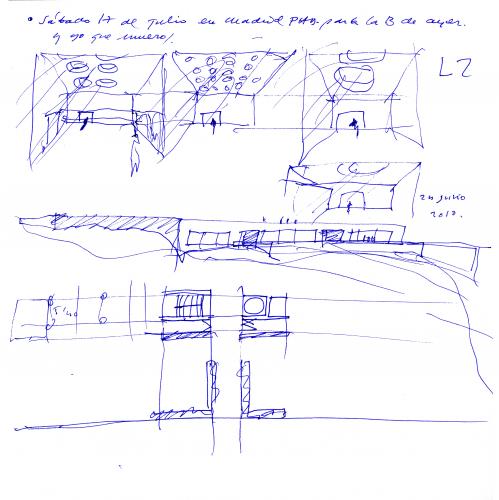 • Sábado 17 de julio en Madrid PHB. para la B de ayer.
y yo que muero/.
L2
20 julio
2010.